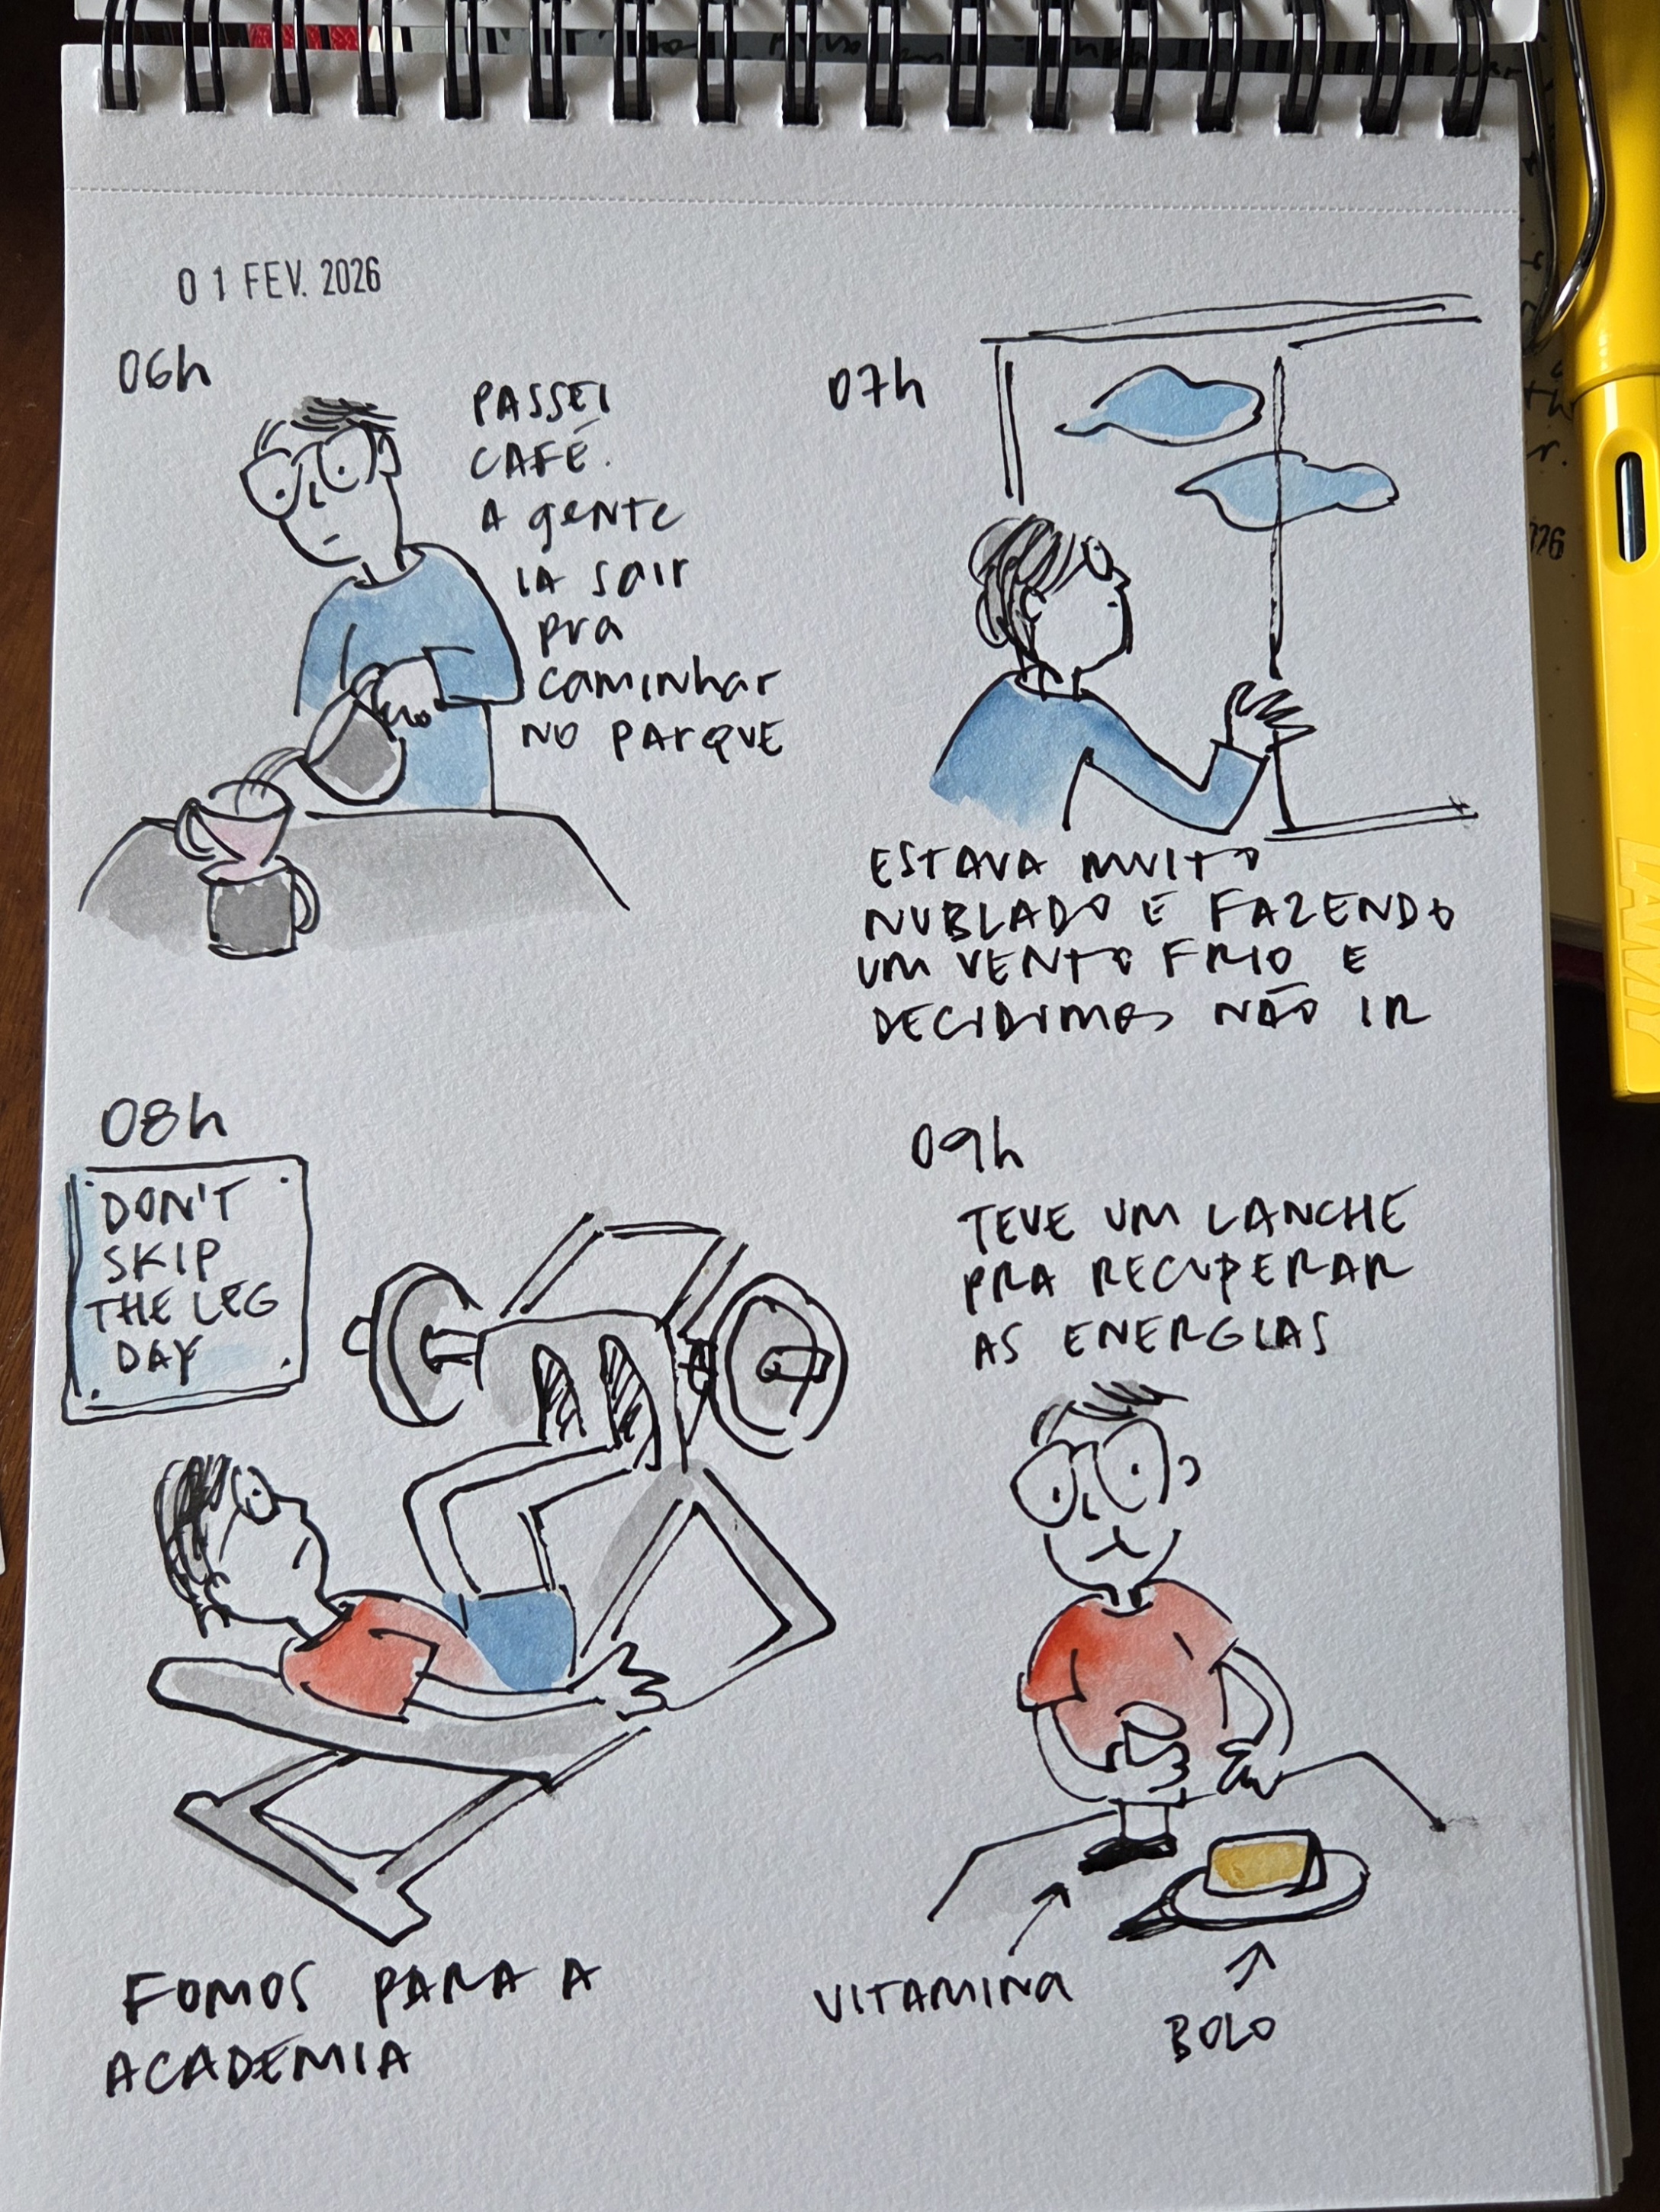 01 FEV. 2026
06h
PASSEI
CAFÉ.
A gENTE
IA SAIr
prA
CAMINHAr
NO PArQUE
07h
ESTAVA MUITO
NUBLADO E FAZENDO
UM VENTO FRIO E
DECIDIMOS NÃO IR
08h
DON'T
SKIP
THE LEG
DAY
FOMOS PARA A
ACADEMIA
09h
TEVE UM LANCHE
PRA RECUPERAR
AS ENERGIAS
VITAMINA
BOLO
LAMY